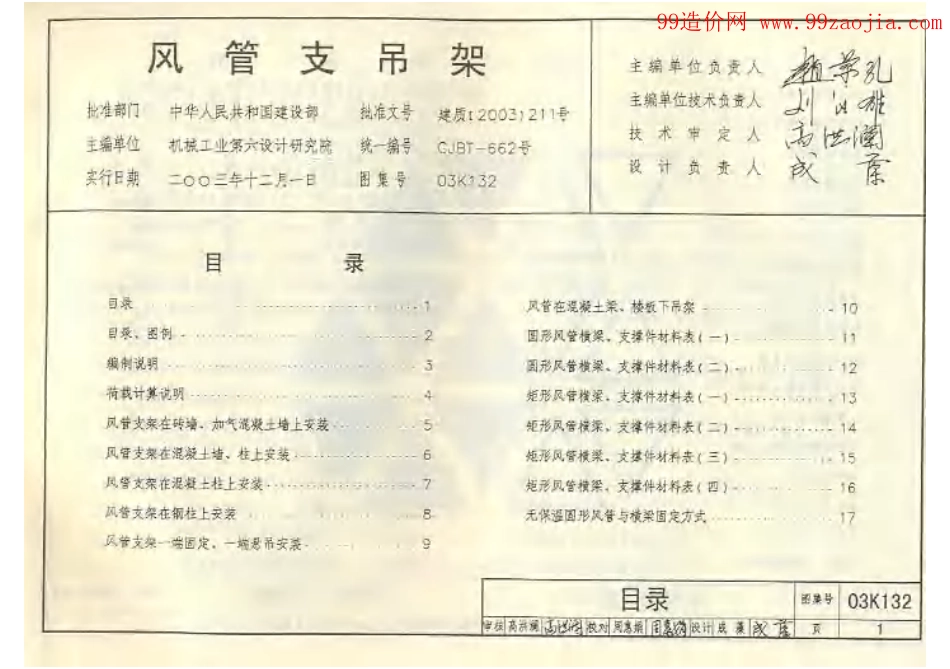 99造价网 www.99zaojia.com
风管支吊架
批准部门 中华人民共和国建设部 批准文号 建质[2003]211号
主编单位 机械工业第六设计研究院 统一编号 GJBT-662号
实行日期 二〇〇三年十二月一日 图集号 03K132
主编单位负责人
主编单位技术负责人 刘
技术审定人 高洪澜
设计负责人 成
目录
目录 1
目录、图例 2
编制说明 3
荷载计算说明 4
风管支架在砖墙、加气混凝土墙上安装 5
风管支架在混凝土墙、柱上安装 6
风管支架在混凝土柱上安装 7
风管支架在钢柱上安装 8
风管支架一端固定、一端悬吊安装 9
风管在混凝土梁、楼板下吊架 10
圆形风管横梁、支撑件材料表(一) 11
圆形风管横梁、支撑件材料表(二) 12
矩形风管横梁、支撑件材料表(一) 13
矩形风管横梁、支撑件材料表(二) 14
矩形风管横梁、支撑件材料表(三) 15
矩形风管横梁、支撑件材料表(四) 16
无保温圆形风管与横梁固定方式 17
目录 图集号 03K132
审核 高洪澜 高洪澜 校对 周惠娟 设计 成 成 页 1